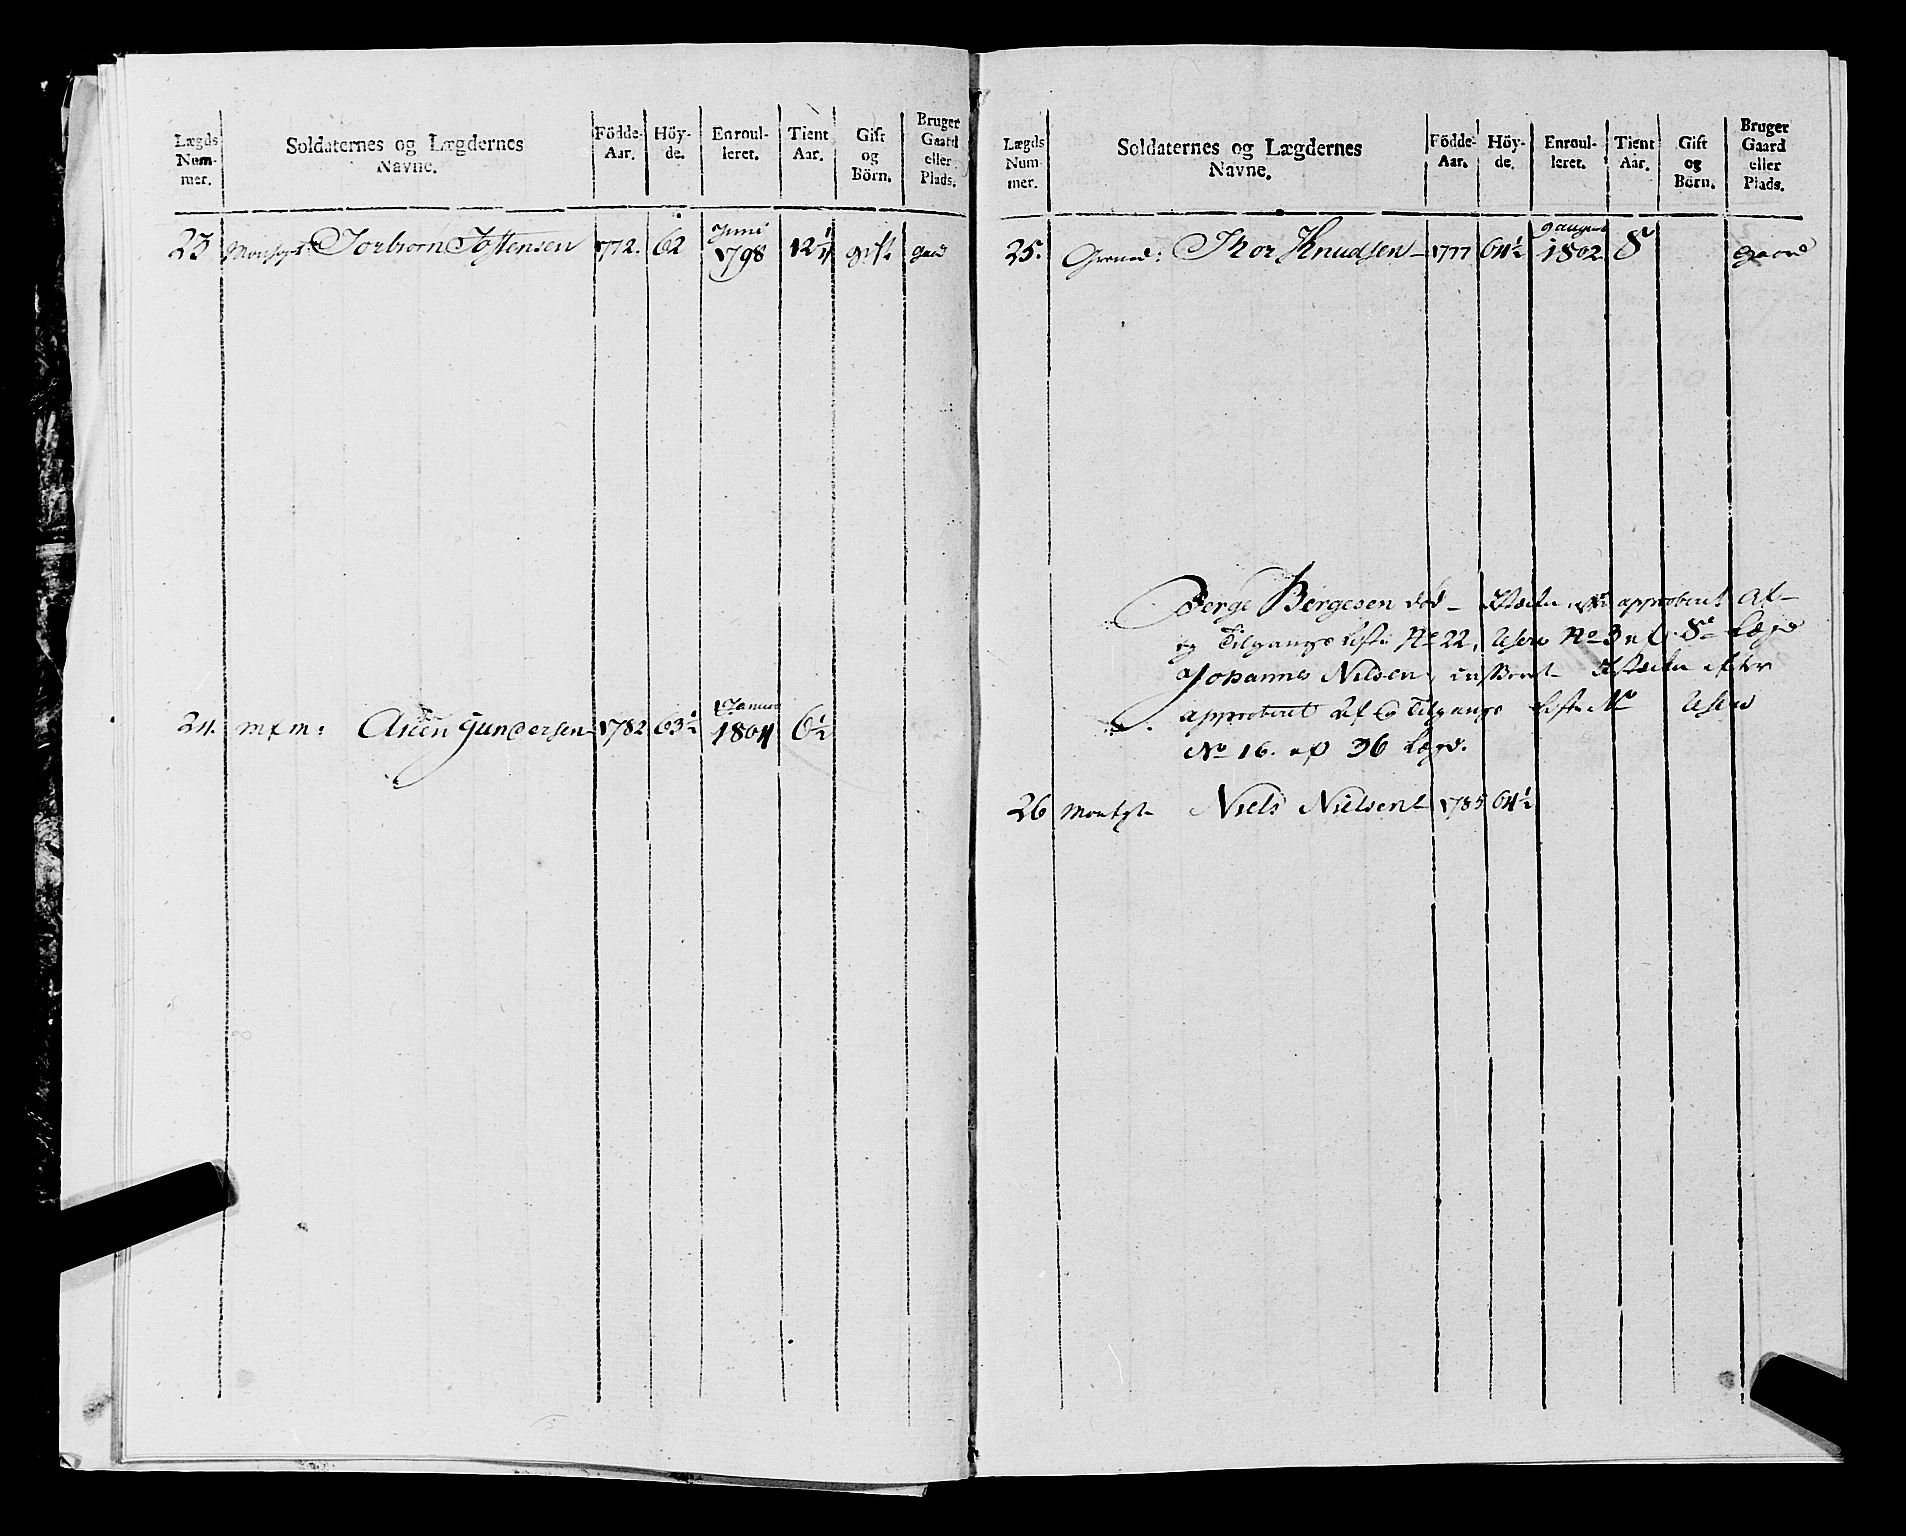 Lægds Num- mer. Soldaternes og Lægdernes Navne. Födde- Aar. Höy- de. Enroul- leret. Tient Aar. Gift og Börn. Bruger Gaard eller Plads.
Juni
23 Torbiorn Tostensen 1772. 62 1798 12 1/4 gift gaad
1 Januar
24. Gundersen 1782 63 1/2 1804 6 1/2
Lægds Num- mer. Soldaternes og Lægdernes Navne. Födde- Aar. Höy- de. Enroul- leret. Tient Aar. Gift og Börn. Bruger Gaard eller Plads.
9 august
25. Grened: Thor Knudsen 1777 64 1/2 1802 8 gaard
Berge Bergesen död approberet Af-
og Tilgangs Liste No 22, No 3 Lægd
Johannes Nilsen efter
approberet Af og Tilgangs Liste No
No 16. af 36 Lægd.
26 Niels Nielsen 1785 64 1/2